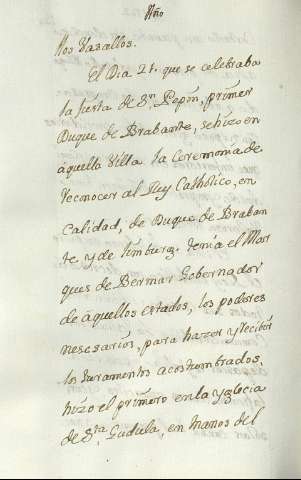 Año
Nos Vasallos.
El Dia 21. que se celebraba
la fiesta de Sn. Pepin, primer
Duque de Brabante, se hizo en
aquella Villa la Ceremonia de
reconocer al Rey Catholico, en
Calidad, de Duque de Braban
te y de Limburg. tenia el Mar
ques de Bermar Gobernador
de aquellos estados, los poderes
nescesarios, para hazer y recibir
los Juramentos acostumbrados,
hizo el primero en la yglecia
de Sta. Gudula, en manos del